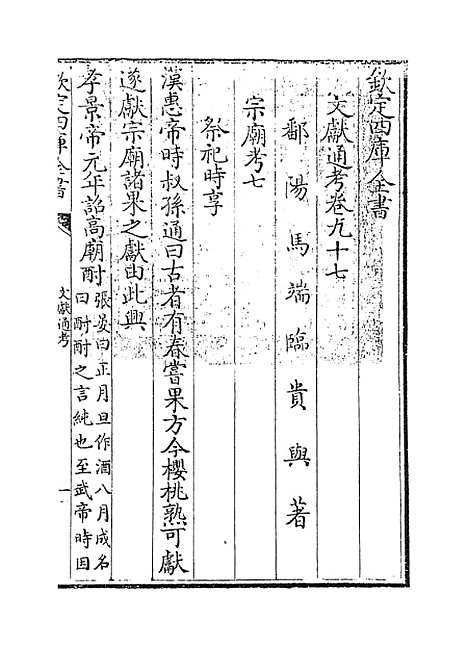 欽定四庫全書
文獻通考卷九十七
鄱陽馬端臨貴與著
宗廟考七
祭祀時享
漢惠帝時叔孫通曰古者有春嘗果方今櫻桃熟可獻
遂獻宗廟諸果之獻由此興
孝景帝元年詔高廟酎
張晏曰正月旦作酒八月成名
曰酎酎之言純也至武帝時因
欽定四庫全書
文獻通考
一